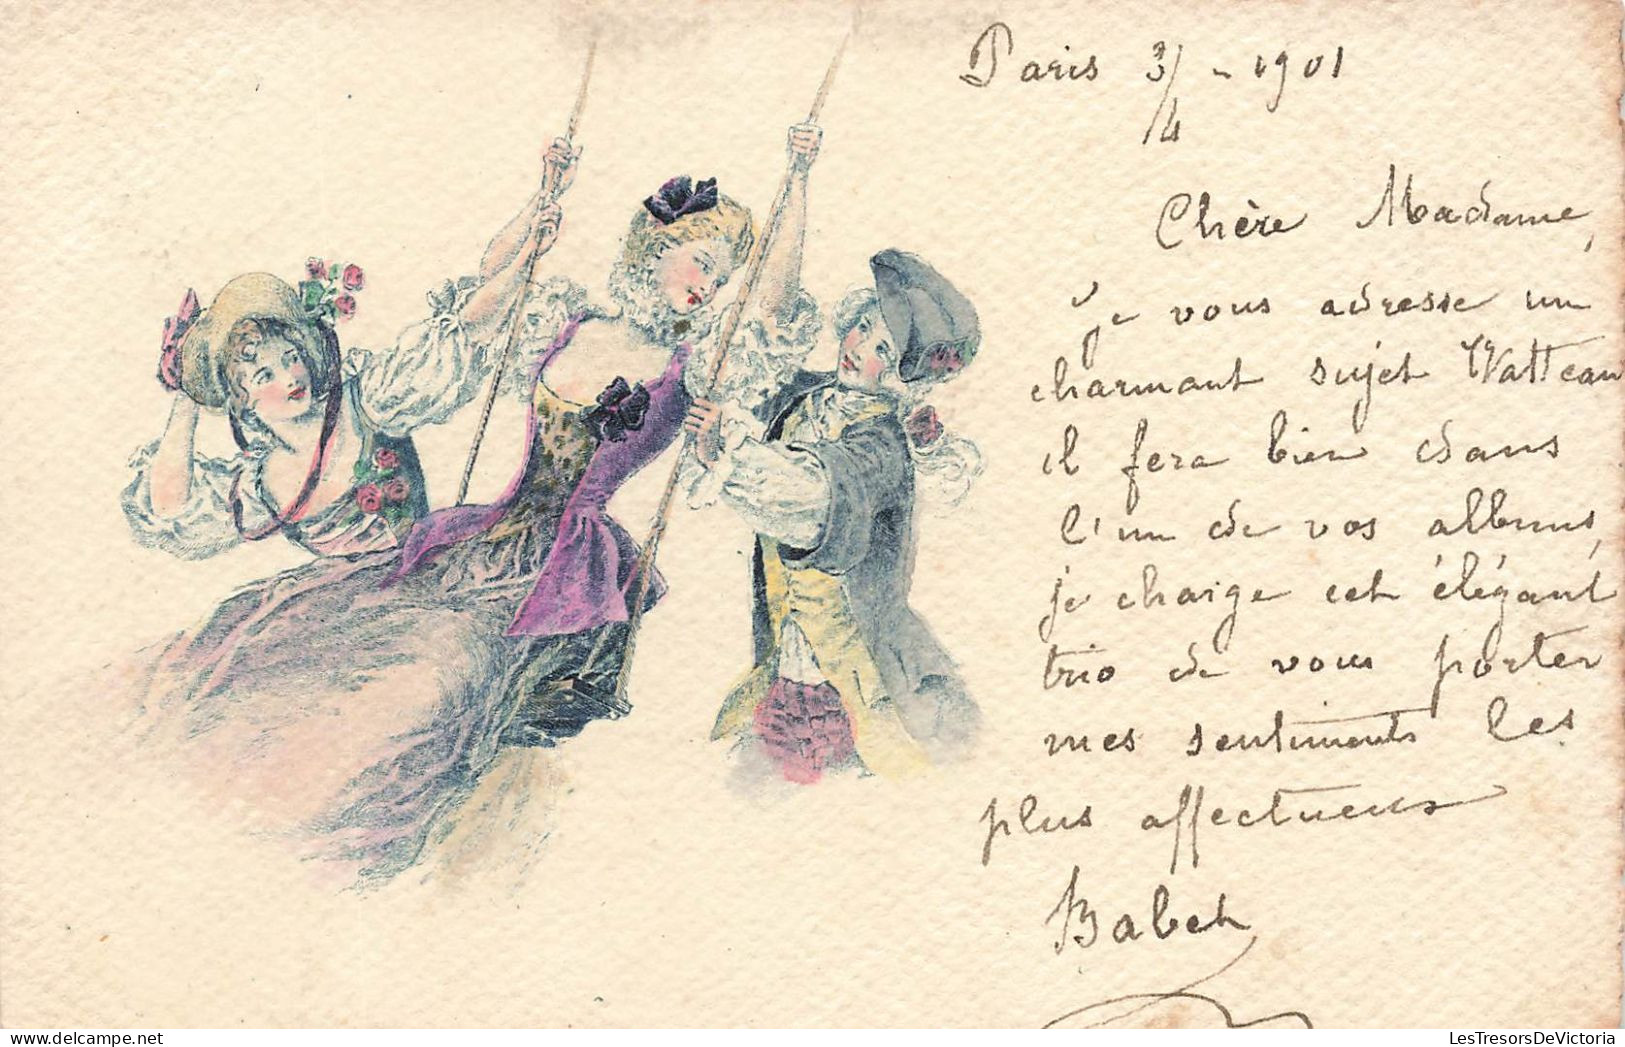 Paris 3/4 - 1901
Chère Madame,
je vous adresse un
charmant sujet Watteau
il fera bien dans
l'un de vos albums,
je charge cet élégant
trio de vous porter
mes sentiments les
plus affectueux
Babet
LesTresorsDeVictoria